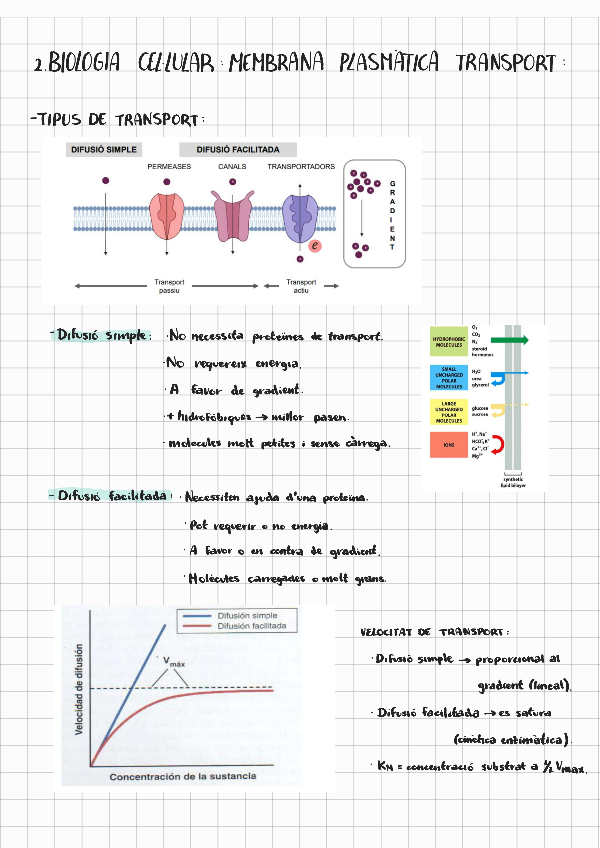 2. BIOLOGIA CEL·LULAR: MEMBRANA PLASMÀTICA TRANSPORT:
-TIPUS DE TRANSPORT:
DIFUSIÓ SIMPLE DIFUSIÓ FACILITADA
PERMEASES CANALS TRANSPORTADORS
GRADIENT
e
Transport passiu
Transport actiu
-Difusió simple: ·No necessita proteïnes de transport.
·No requereix energia.
·A favor de gradient.
·+ hidrofòbiques → millor passen.
·molècules molt petites i sense càrrega.
HYDROPHOBIC MOLECULES
O₂
CO₂
N₂
steroid
hormones
SMALL UNCHARGED POLAR MOLECULES
H₂O
urea
glycerol
LARGE UNCHARGED POLAR MOLECULES
glucose
sucrose
IONS
H⁺, Na⁺
HCO₃⁻, K⁺
Ca²⁺, Cl⁻
Mg²⁺
synthetic
lipid bilayer
-Difusió facilitada: ·Necessiten ajuda d'una proteïna.
·Pot requerir o no energia.
·A favor o en contra de gradient.
·Molècules carregades o molt grans.
Difusión simple
Difusión facilitada
Vmáx
Velocidad de difusión
Concentración de la sustancia
VELOCITAT DE TRANSPORT:
·Difusió simple → proporcional al
gradient (lineal).
·Difusió facilitada → es satura
(cinètica enzimàtica).
·KM = concentració substrat a ½ Vmax.